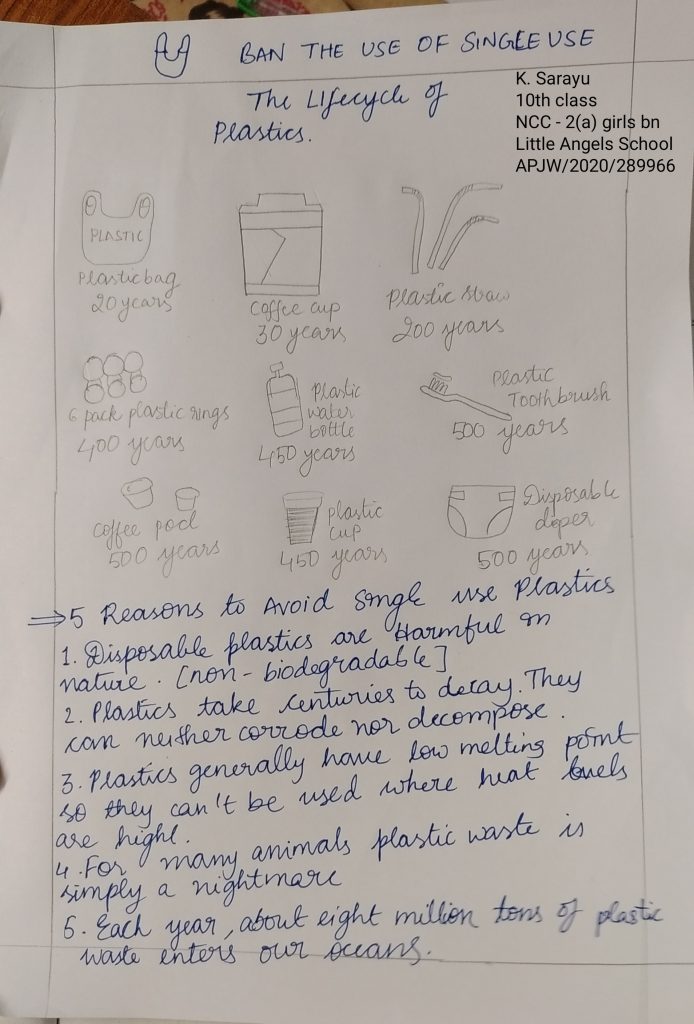 BAN THE USE OF SINGLE USE
The Lifecycle of
Plastics.
K. Sarayu
10th class
NCC - 2(a) girls bn
Little Angels School
APJW/2020/289966
PLASTIC
Plastic bag
20 years
Coffee cup
30 years
Plastic straw
200 years
6 pack plastic rings
400 years
Plastic
water
bottle
450 years
Plastic
Toothbrush
500 years
coffee pod
500 years
plastic
cup
450 years
Disposable
deper
500 years
⇒5 Reasons to Avoid single use Plastics
1. Disposable plastics are Harmful in
nature. [non-biodegradable]
2. Plastics take centuries to decay. They
can neither corrode nor decompose.
3. Plastics generally have low melting point
so they can't be used where heat levels
are highl.
4. For many animals plastic waste is
simply a nightmare
5. Each year, about eight million tons of plastic
waste enters our oceans.